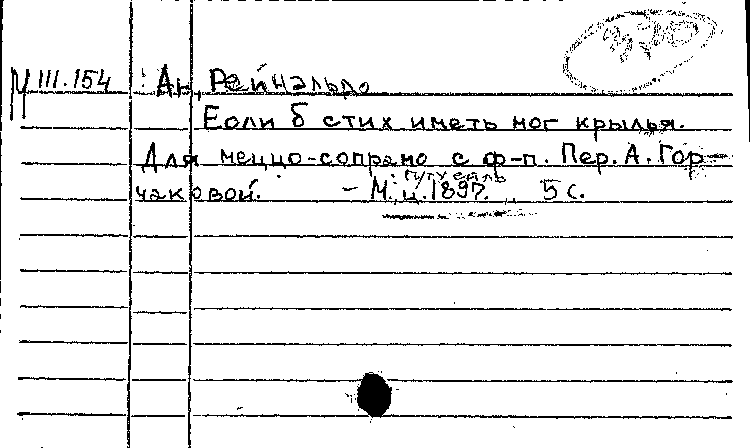 М III.154 Ан, Рейнальдо
Если б стих иметь мог крылья.
Для меццо-сопрано с ф-п. Пер. А. Гор-
чаковой. - М., ц. 1897. 5 с.
Гутхейль